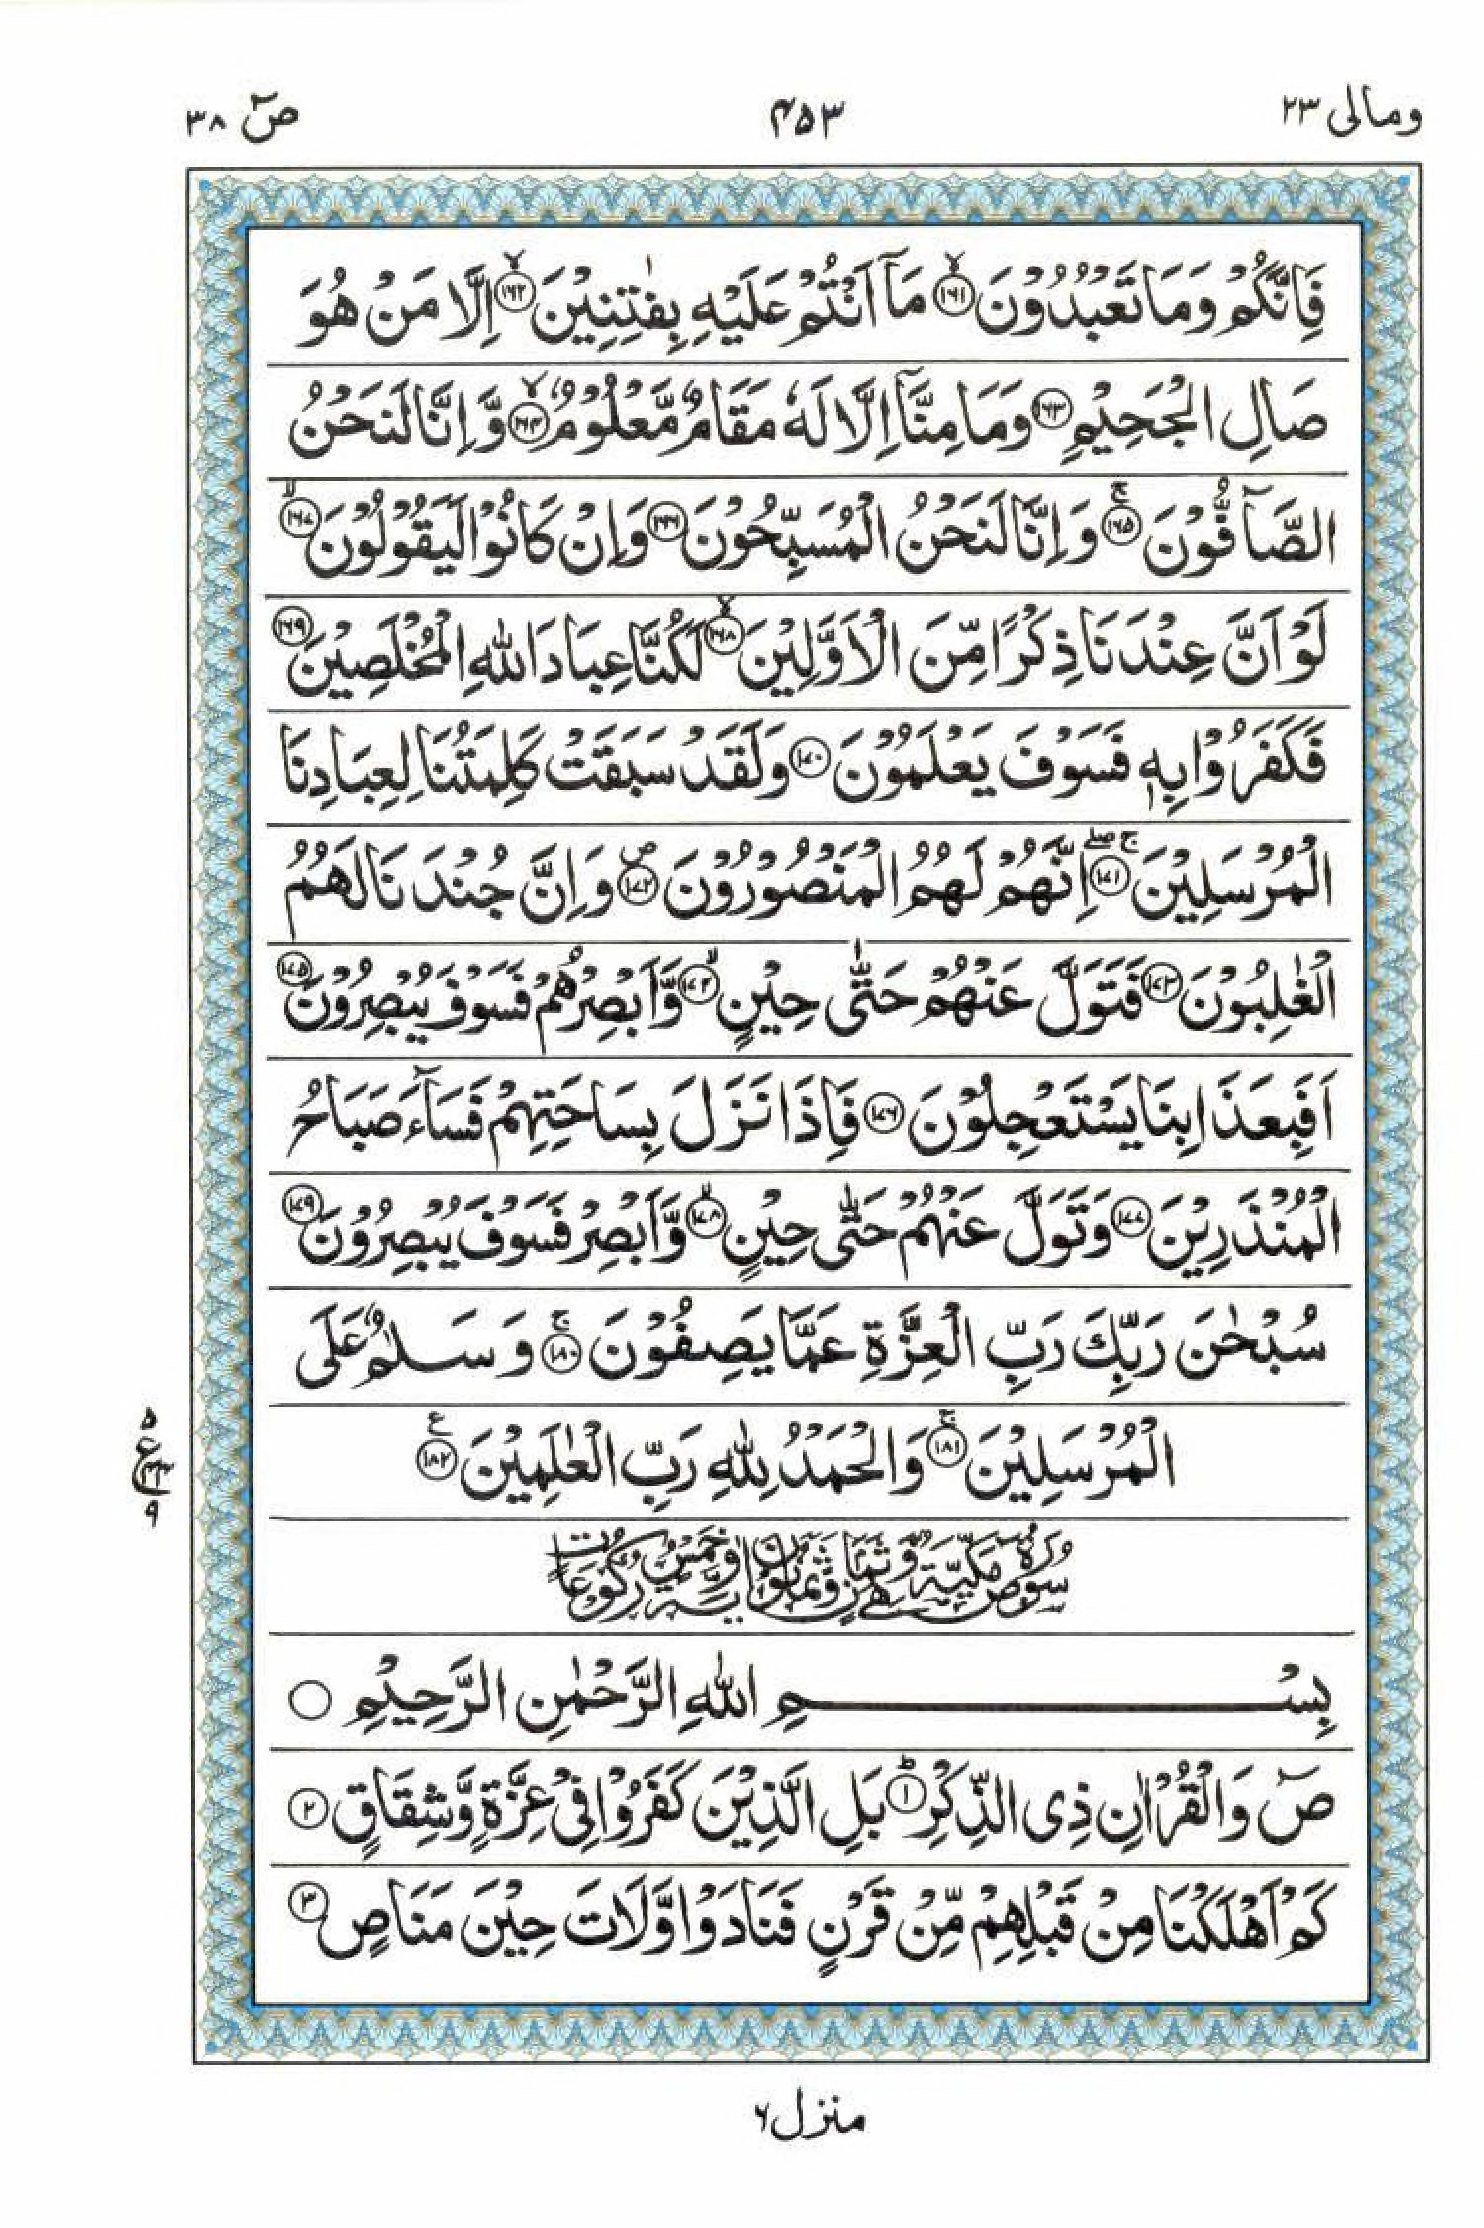 ومالی ۲۳
۴۵۳
صٓ ۳۸
فَاِنَّكُمْ وَمَا تَعْبُدُوْنَ ۱۶۱ۙ مَاۤ اَنْتُمْ عَلَيْهِ بِفٰتِنِيْنَ ۱۶۲ۙ اِلَّا مَنْ هُوَ
صَالِ الْجَحِيْمِ ۱۶۳ وَمَا مِنَّاۤ اِلَّا لَهٗ مَقَامٌ مَّعْلُوْمٌ ۱۶۴ۙ وَّاِنَّا لَنَحْنُ
الصَّآفُّوْنَ ۱۶۵ۚ وَاِنَّا لَنَحْنُ الْمُسَبِّحُوْنَ ۱۶۶ وَاِنْ كَانُوْا لَيَقُوْلُوْنَ ۱۶۷ۙ
لَوْ اَنَّ عِنْدَنَا ذِكْرًا مِّنَ الْاَوَّلِيْنَ ۱۶۸ۙ لَكُنَّا عِبَادَ اللّٰهِ الْمُخْلَصِيْنَ ۱۶۹
فَكَفَرُوْا بِهٖ فَسَوْفَ يَعْلَمُوْنَ ۱۷۰ وَلَقَدْ سَبَقَتْ كَلِمَتُنَا لِعِبَادِنَا
الْمُرْسَلِيْنَ ۱۷۱ۚۖ اِنَّهُمْ لَهُمُ الْمَنْصُوْرُوْنَ ۱۷۲ص وَاِنَّ جُنْدَنَا لَهُمُ
الْغٰلِبُوْنَ ۱۷۳ فَتَوَلَّ عَنْهُمْ حَتّٰى حِيْنٍ ۱۷۴ۙ وَّاَبْصِرْهُمْ فَسَوْفَ يُبْصِرُوْنَ ۱۷۵
اَفَبِعَذَابِنَا يَسْتَعْجِلُوْنَ ۱۷۶ فَاِذَا نَزَلَ بِسَاحَتِهِمْ فَسَآءَ صَبَاحُ
الْمُنْذَرِيْنَ ۱۷۷ وَتَوَلَّ عَنْهُمْ حَتّٰى حِيْنٍ ۱۷۸ۙ وَّاَبْصِرْ فَسَوْفَ يُبْصِرُوْنَ ۱۷۹
سُبْحٰنَ رَبِّكَ رَبِّ الْعِزَّةِ عَمَّا يَصِفُوْنَ ۱۸۰ۚ وَسَلٰمٌ عَلَى
الْمُرْسَلِيْنَ ۱۸۱ۚ وَالْحَمْدُ لِلّٰهِ رَبِّ الْعٰلَمِيْنَ ۱۸۲ع
۵
ع
۹
سُوْرَةُ صٓ مَكِّيَّةٌ وَّهِيَ ثَمَانٌ وَّثَمَانُوْنَ اٰيَةً وَّخَمْسُ رُكُوْعَاتٍ
بِسْمِ اللّٰهِ الرَّحْمٰنِ الرَّحِيْمِ
صٓ وَالْقُرْاٰنِ ذِى الذِّكْرِ ۱ؕ بَلِ الَّذِيْنَ كَفَرُوْا فِىْ عِزَّةٍ وَّشِقَاقٍ ۲
كَمْ اَهْلَكْنَا مِنْ قَبْلِهِمْ مِّنْ قَرْنٍ فَنَادَوْا وَّلَاتَ حِيْنَ مَنَاصٍ ۳
منزل ۶